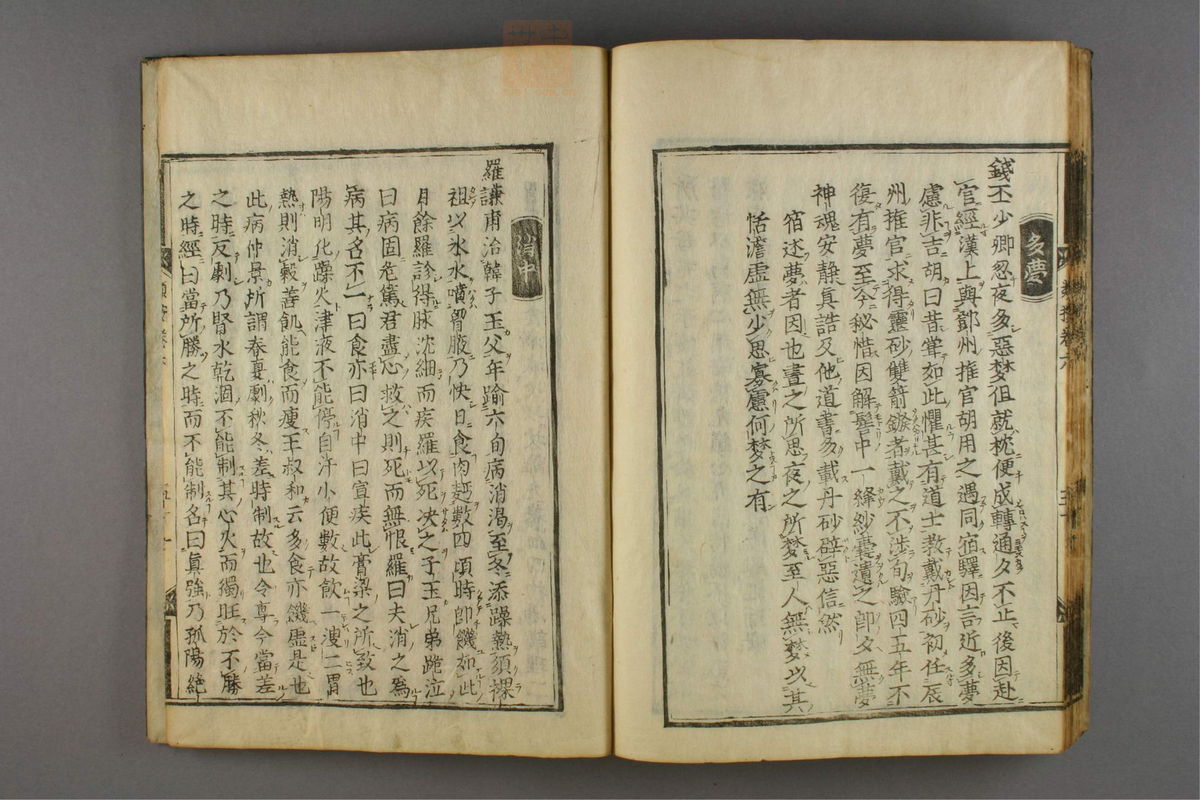 多夢
錢丕少卿忽夜多惡夢但就枕便成轉通夕不止後因赴
官經漢上與鄧州推官胡用之遇同宿驛因言近多夢
慮非吉胡曰昔常如此懼甚有道士教戴丹砂初任辰
州推官求得靈砂雙箭鏃者戴之不涉旬驗四五年不
復有夢至今秘惜因解髻中一絳紗囊遺之卽夕無夢
神魂安靜真誥及他道書多載丹砂辟惡信然
宿述夢者因也晝之所思夜之所夢至人無夢以其
恬澹虛無少思寡慮何夢之有
消中
羅謙甫治韓子玉父年踰六旬病消渴至冬添躁熱須裸
袒以氷水噴胷腋乃快日食肉麵數四頃時卽饑如此
月餘羅診得脉沈細而疾羅以死决之子玉兄弟跪泣
曰病固危篤君盡心救之則死而無恨羅曰夫消之為
病其名不一曰食亦曰消中曰宣疾此膏粱之所致也
陽明化燥火津液不能停自汗小便數故飲一溲二胃
熱則消穀善飢能食而瘦王叔和云多食亦饑虛是也
此病仲景所謂春夏劇秋冬差時制故也令尊今當差
之時反劇乃腎水乾涸不能制其心火而獨旺於不勝
之時經曰當所勝之時而不能制名曰真強乃孤陽絶